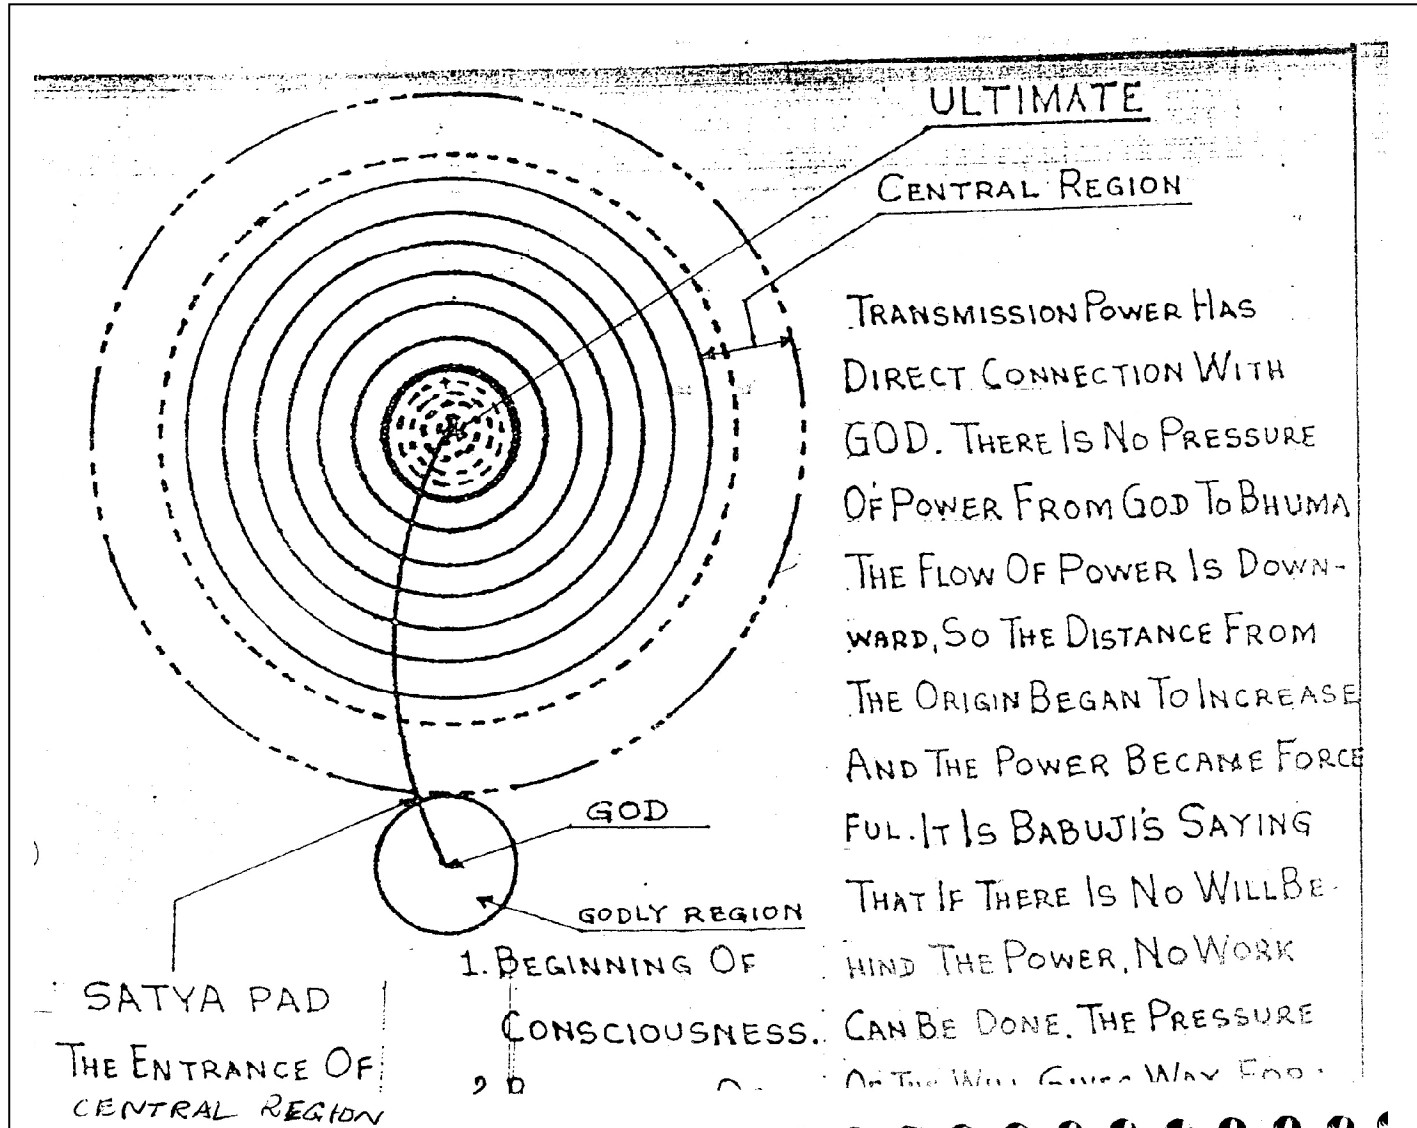 ULTIMATE
CENTRAL REGION
TRANSMISSION POWER HAS
DIRECT CONNECTION WITH
GOD. THERE IS NO PRESSURE
OF POWER FROM GOD TO BHUMA
THE FLOW OF POWER IS DOWN-
WARD, SO THE DISTANCE FROM
THE ORIGIN BEGAN TO INCREASE
AND THE POWER BECAME FORCE
FUL. IT IS BABUJI'S SAYING
THAT IF THERE IS NO WILL BE-
HIND THE POWER, NO WORK
CAN BE DONE. THE PRESSURE
OF THE WILL GIVES WAY FOR
GOD
GODLY REGION
1. BEGINNING OF
CONSCIOUSNESS.
SATYA PAD
THE ENTRANCE OF
CENTRAL REGION